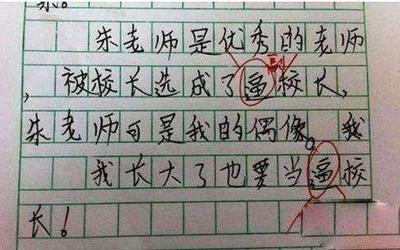 朱老师是优秀的老师
副
,被校长选成了逼校长,
朱老师可是我的偶像。我
我长大了也要当逼校
长!